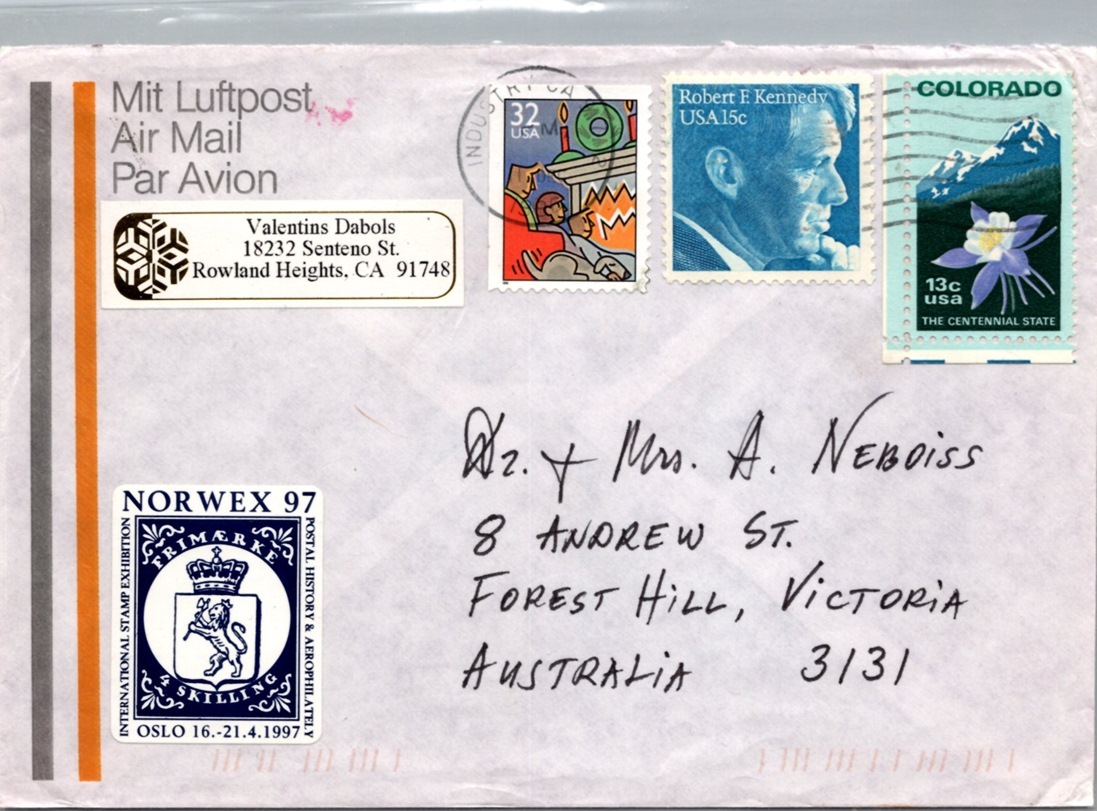 Mit Luftpost
Air Mail
Par Avion
Valentins Dabols
18232 Senteno St.
Rowland Heights, CA 91748
INDUSTRY CA
32
USA
Robert F. Kennedy
USA 15c
COLORADO
13c
usa
THE CENTENNIAL STATE
Dr. + Mrs. A. NEBOISS
8 ANDREW ST.
FOREST HILL, VICTORIA
AUSTRALIA 3131
NORWEX 97
INTERNATIONAL STAMP EXHIBITION
FRIMÆRKE
4 SKILLING
POSTAL HISTORY & AEROPHILATELY
OSLO 16.-21.4.1997